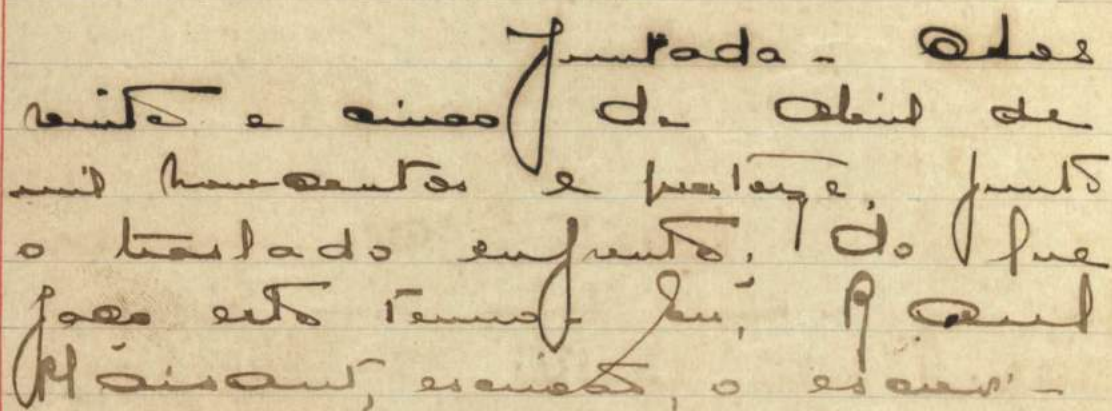 Juntada - Aos
vinte e cinco de Abril de
mil novecentos e quatorze, junto
o traslado enfrente. Do que
faço este termo. Eu, Raul
Plaisant, escrivão, o escrevi -